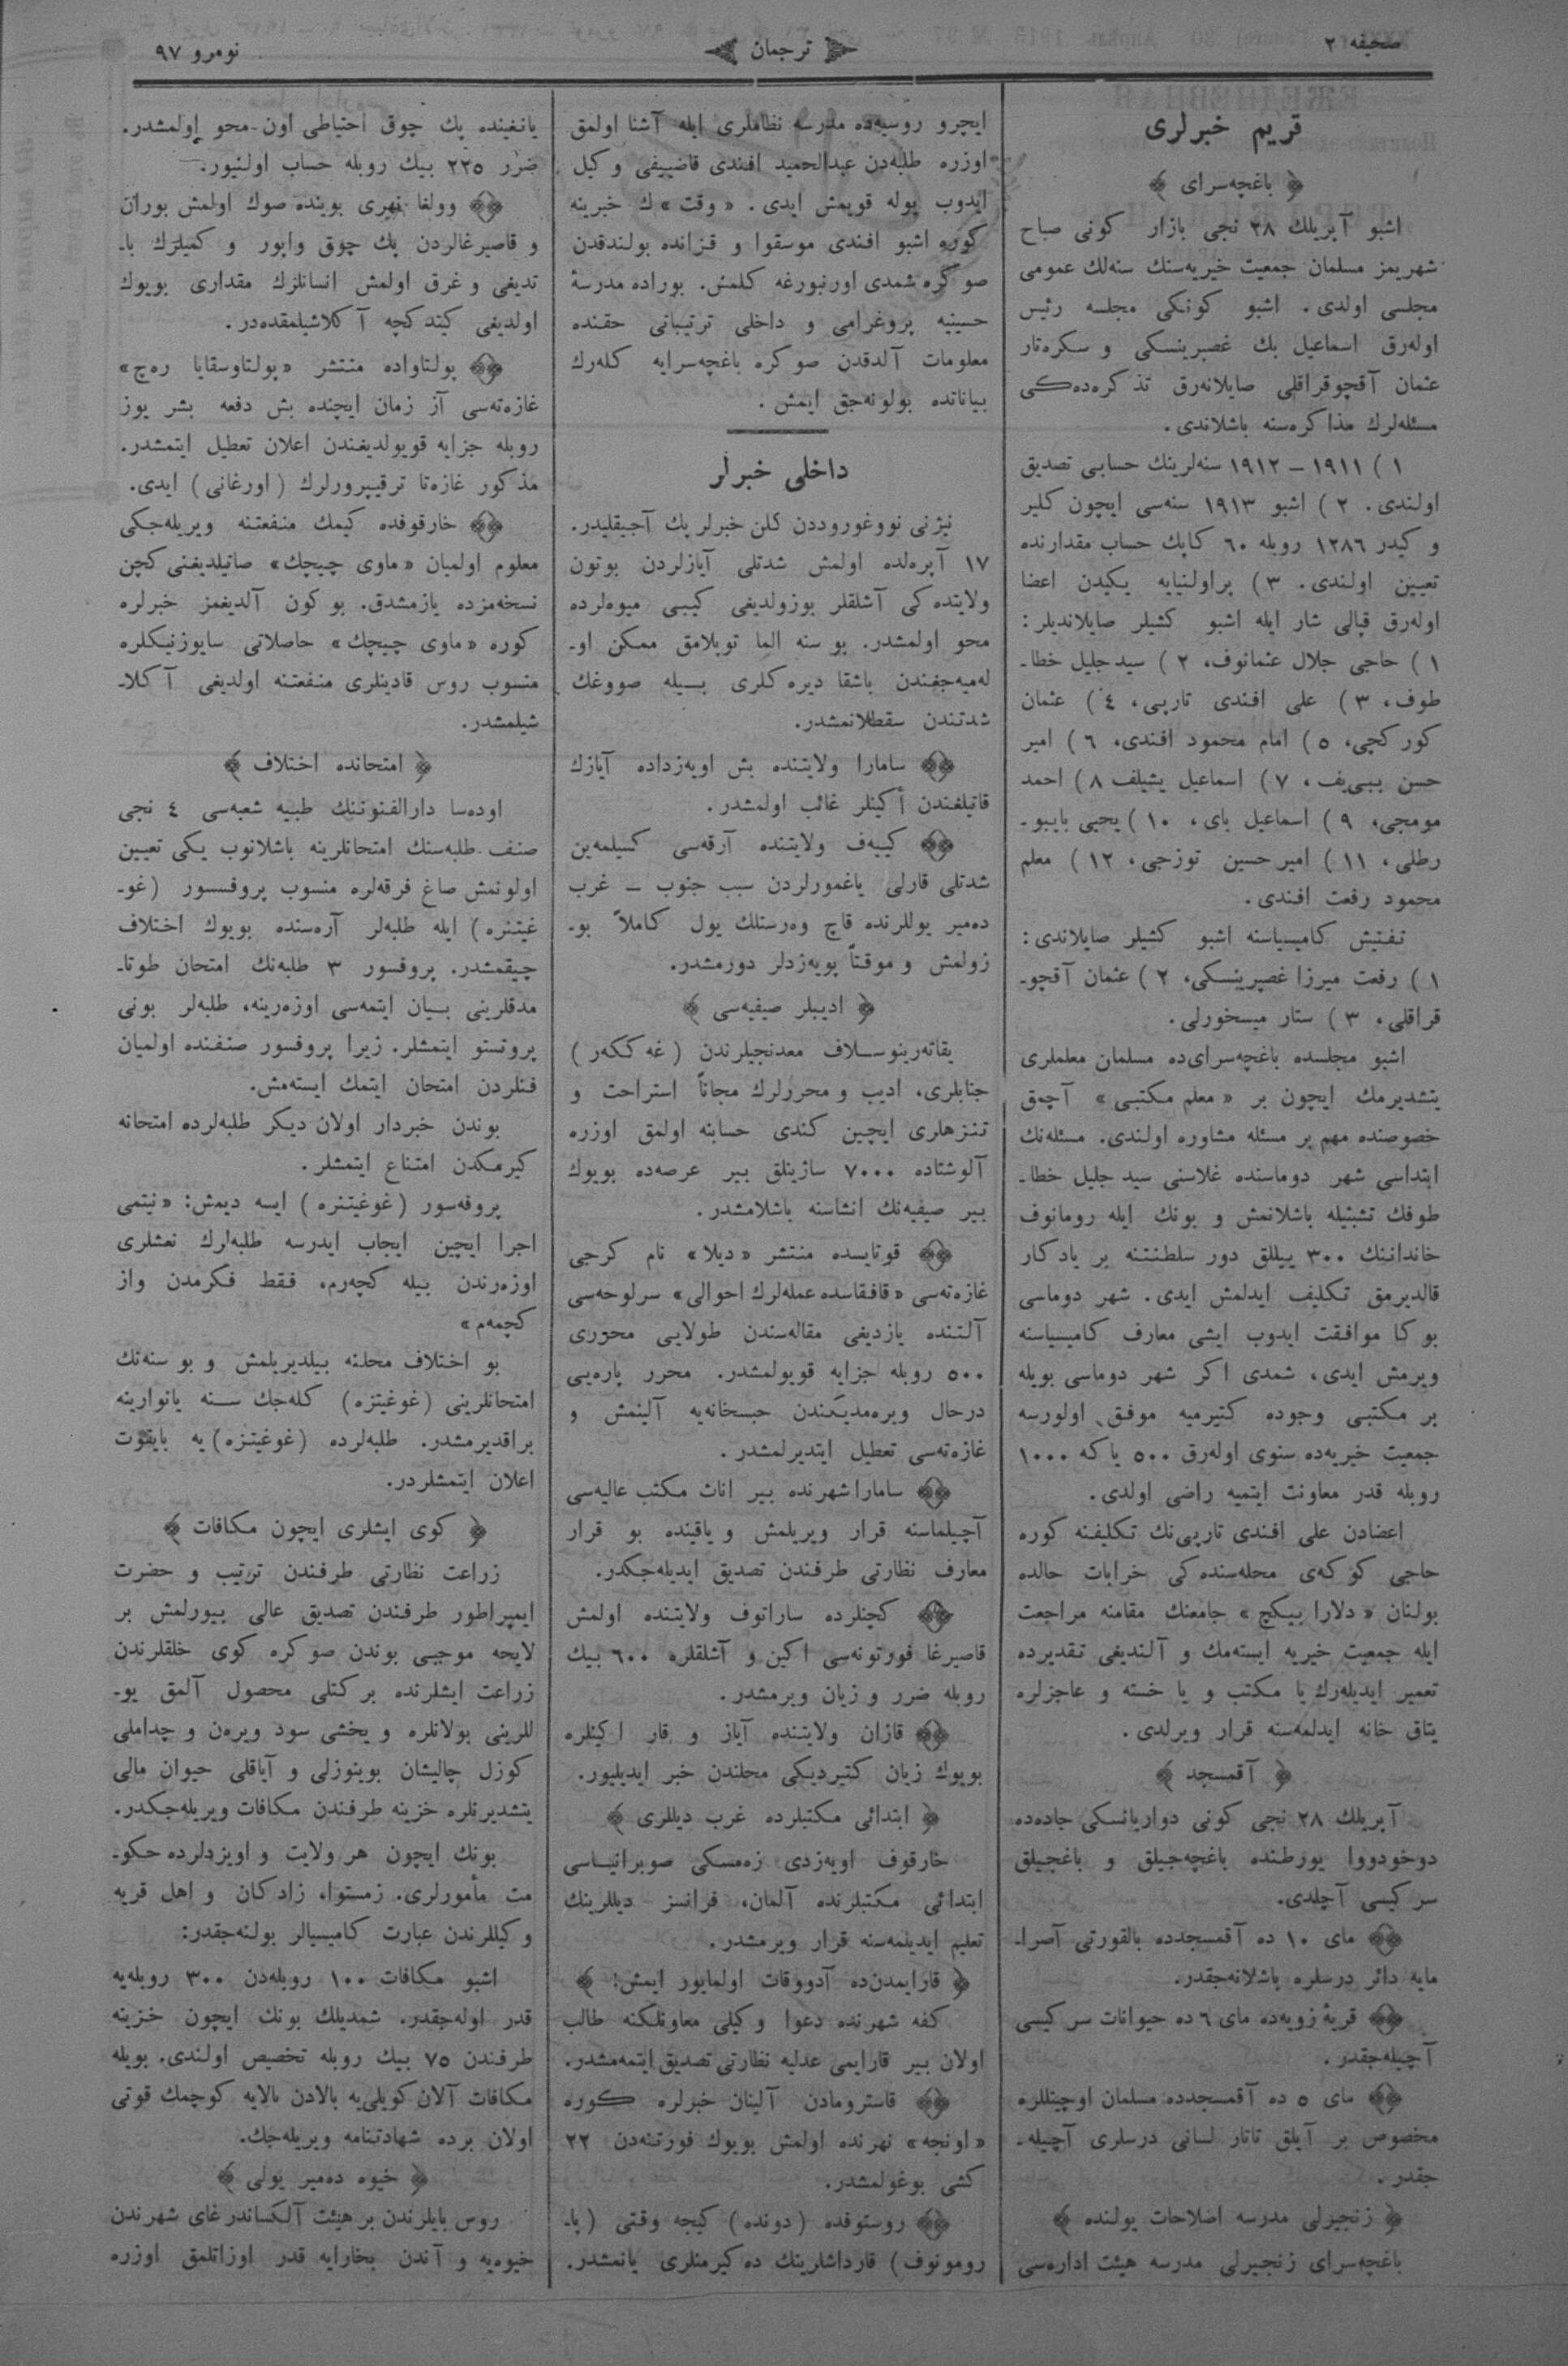 صحیفه ٢
ترجمان
نومرو ٩٧
قریم خبرلری
﴿ باغچه‌سرای ﴾
اشبو آپریلك ٢٨ نجی بازار کونی صباح
شهریمز مسلمان جمعیت خیریه‌سنك سنه‌لك عمومی
مجلسی اولدی. اشبو کونکی مجلسه رئیس
اوله‌رق اسماعیل بك غصبرینسکی و سکره‌تار
عثمان آقچوقراقلی صایلانه‌رق تذکره‌ده‌کی
مسئله‌لرك مذاکره‌سنه باشلاندی.
١ ) ١٩١١ – ١٩١٢ سنه‌لرینك حسابی تصدیق
اولندی. ٢ ) اشبو ١٩١٣ سنه‌سی ایچون کلیر
و کیدر ١٢٨٦ روبله ٦٠ کاپك حساب مقدارنده
تعیین اولندی. ٣ ) پراولنیایه یکیدن اعضا
اوله‌رق قپالی شار ایله اشبو کشیلر صایلاندیلر:
١ ) حاجی جلال عثمانوف، ٢ ) سید جلیل خطا۔
طوف، ٣ ) علی افندی تارپی، ٤ ) عثمان
کورکچی، ٥ ) امام محمود افندی، ٦ ) امیر
حسن بیی‌یف، ٧ ) اسماعیل یشیلف ٨ ) احمد
مومجی، ٩ ) اسماعیل بای، ١٠ ) یحیی بایبو۔
رطلی، ١١ ) امیر حسین توزجی، ١٢ ) معلم
محمود رفعت افندی.
تفتیش کامیسیاسنه اشبو کشیلر صایلاندی:
١ ) رفعت میرزا غصپرینسکی، ٢ ) عثمان آقچو۔
قراقلی، ٣ ) ستار میسخورلی.
اشبو مجلسده باغچه‌سرای‌ده مسلمان معلملری
یتشدیرمك ایچون بر « معلم مکتبی » آچمق
خصوصنده مهم بر مسئله مشاوره اولندی. مسئله‌نك
ابتداسی شهر دوماسنده غلاسنی سید جلیل خطا۔
طوفك تشبثیله باشلانمش و بونك ایله رومانوف
خانداننك ٣٠٠ ییللق دور سلطنتنه بر یادکار
قالدیرمق تکلیف ایدلمش ایدی. شهر دوماسی
بوکا موافقت ایدوب ایشی معارف کامیسیاسنه
ویرمش ایدی، شمدی اکر شهر دوماسی بویله
بر مکتبی وجوده کتیرمیه موفق اولورسه
جمعیت خیریه‌ده سنوی اوله‌رق ٥٠٠ یاکه ١٠٠٠
روبله قدر معاونت ایتمیه راضی اولدی.
اعضادن علی افندی تارپی‌نك تکلیفنه کوره
حاجی کوکه‌ی محله‌سنده‌کی خرابات حالده
بولنان « دلارا بیکج » جامعنك مقامنه مراجعت
ایله جمعیت خیریه ایسته‌مك و آلندیغی تقدیرده
تعمیر ایدیله‌رك یا مکتب و یا خسته و عاجزلره
یتاق خانه ایدلمه‌سنه قرار ویرلدی.
﴿ آقمسجد ﴾
آپریلك ٢٨ نجی کونی دواریانسکی جاده‌ده
دوخودووا یورطنده باغچه‌جیلق و باغجیلق
سرکیسی آچلدی.
مای ١٠ ده آقمسجدده بالقورتی آصرا۔
مایه دائر درسلره باشلانه‌جقدر.
قریۀ زویه‌ده مای ٦ ده حیوانات سرکیسی
آچیله‌جقدر.
مای ٥ ده آقمسجدده مسلمان اوچیتللره
مخصوص بر آیلق تاتار لسانی درسلری آچیله۔
جقدر.
﴿ زنجیرلی مدرسه اصلاحات یولنده ﴾
باغچه‌سرای زنجیرلی مدرسه هیئت اداره‌سی
ایچرو روسیه‌ده مدرسه نظاملری ایله آشنا اولمق
اوزره طلبه‌دن عبدالحمید افندی قاضییفی وکیل
ایدوب یوله قویمش ایدی. « وقت » ك خبرینه
کوره اشبو افندی موسقوا و قزانده بولندقدن
صوکره شمدی اورنبورغه کلمش. بوراده مدرسۀ
حسینیه پروغرامی و داخلی ترتیباتی حقنده
معلومات آلدقدن صوکره باغچه‌سرایه کله‌رك
بیاناتده بولونه‌جق ایمش.
داخلی خبرلر
نیژنی نووغورود‌دن کلن خبرلر پك آجیقلیدر.
١٧ آپره‌لده اولمش شدتلی آیازلردن بوتون
ولایتده‌کی آشلقلر بوزولدیغی کیبی میوه‌لرده
محو اولمشدر. بو سنه الما توپلامق ممکن او۔
له‌میه‌جغندن باشقا دیره‌کلری بیله صووغك
شدتندن سقطلانمشدر.
سامارا ولایتنده بش اویه‌زداده آیازك
قاتیلغندن أکینلر غائب اولمشدر.
کییه‌ف ولایتنده آرقه‌سی کسیلمه‌ین
شدتلی قارلی یاغمورلردن سبب جنوب – غرب
ده‌میر یوللرنده قاچ وه‌رستلك یول کاملاً بو۔
زولمش و موقتاً پویه‌زدلر دورمشدر.
﴿ ادیبلر صیفیه‌سی ﴾
یقاته‌رینوسلاف معدنجیلرندن (غه‌ککه‌ر)
جنابلری، ادیب و محررلرك مجاناً استراحت و
تنزهلری ایچین کندی حسابنه اولمق اوزره
آلوشتاده ٧٠٠٠ ساژینلق بیر عرصه‌ده بویوك
بیر صیفیه‌نك انشاسنه باشلامشدر.
قوتایسده منتشر « دیلا » نام کرجی
غازه‌ته‌سی « قافقاسده عمله‌لرك احوالی » سرلوحه‌سی
آلتنده یازدیغی مقاله‌سندن طولایی محرری
٥٠٠ روبله جزایه قویولمشدر. محرر پاره‌یی
درحال ویره‌مدیکندن حبسخانه‌یه آلینمش و
غازه‌ته‌سی تعطیل ایتدیرلمشدر.
سامارا شهرنده بیر اناث مکتب عالیه‌سی
آچیلماسنه قرار ویریلمش و یاقینده بو قرار
معارف نظارتی طرفندن تصدیق ایدیله‌جکدر.
کچنلرده ساراتوف ولایتنده اولمش
قاصیرغا فورتونه‌سی اکین و آشلقلره ٦٠٠ بیك
روبله ضرر و زیان ویرمشدر.
قازان ولایتنده آیاز و قار اکینلره
بویوك زیان کتیردیکی محلندن خبر ایدیلیور.
﴿ ابتدائی مکتبلرده غرب دیللری ﴾
خارقوف اویه‌زدی زه‌مسکی صوبرانیاسی
ابتدائی مکتبلرنده آلمان، فرانسز دیللرینك
تعلیم ایدیلمه‌سنه قرار ویرمشدر.
﴿ قارایمدن‌ده آدووقات اولمایور ایمش! ﴾
کفه شهرنده دعوا وکیلی معاونلکنه طالب
اولان بیر قارایمی عدلیه نظارتی تصدیق ایتمه‌مشدر.
قاسترومادن آلینان خبرلره کوره
« اونجه » نهرنده اولمش بویوك فورتنه‌دن ٢٢
کشی بوغولمشدر.
روستوفده (دونده) کیجه وقتی (پا۔
رومونوف) قارداشلرینك ده‌کیرمنلری یانمشدر.
یانغینده پك چوق احتیاطی اون محو اولمشدر.
ضرر ٢٢٥ بیك روبله حساب اولنیور.
وولغا نهری بوینده صوك اولمش بوران
و قاصیرغالردن پك چوق واپور و کمیلرك با۔
تدیغی و غرق اولمش انسانلرك مقداری بویوك
اولدیغی کیتدکچه آکلاشیلمقده‌در.
پولتاواده منتشر « پولتاوسقایا ره‌چ »
غازه‌ته‌سی آز زمان ایچنده بش دفعه بشر یوز
روبله جزایه قویولدیغندن اعلان تعطیل ایتمشدر.
مذکور غازه‌تا ترقیپرورلرك (اورغانی) ایدی.
خارقوفده کیمك منفعتنه ویریله‌جکی
معلوم اولمیان « ماوی چیچك » صاتیلدیغنی کچن
نسخه‌مزده یازمشدق. بو کون آلدیغمز خبرلره
کوره « ماوی چیچك » حاصلاتی سایوزنیکلره
منسوب روس قادینلری منفعتنه اولدیغی آکلا۔
شیلمشدر.
﴿ امتحانده اختلاف ﴾
اوده‌سا دارالفنوننك طبیه شعبه‌سی ٤ نجی
صنف طلبه‌سنك امتحانلرینه باشلانوب یکی تعیین
اولونمش صاغ فرقه‌لره منسوب پروفسسور (غو۔
غیتنزه) ایله طلبه‌لر آره‌سنده بویوك اختلاف
چیقمشدر. پروفسور ٣ طلبه‌نك امتحان طوتا۔
مدقلرینی بیان ایتمه‌سی اوزه‌رینه، طلبه‌لر بونی
پروتستو ایتمشلر. زیرا پروفسور صنفنده اولمیان
فنلردن امتحان ایتمك ایسته‌مش.
بوندن خبردار اولان دیکر طلبه‌لرده امتحانه
کیرمکدن امتناع ایتمشلر.
پروفه‌سور (غوغیتنزه) ایسه دیمش: « نیتمی
اجرا ایچین ایجاب ایدرسه طلبه‌لرك نعشلری
اوزه‌رندن بیله کچه‌رم، فقط فکرمدن واز
کچمه‌م »
بو اختلاف محلنه بیلدیریلمش و بو سنه‌نك
امتحانلرینی (غوغیتنزه) کله‌جك سنه یانوارینه
براقدیرمشدر. طلبه‌لرده (غوغیتنزه)یه بایقوت
اعلان ایتمشلردر.
﴿ کوی ایشلری ایچون مکافات ﴾
زراعت نظارتی طرفندن ترتیب و حضرت
ایمپراطور طرفندن تصدیق عالی بیورلمش بر
لایحه موجبی بوندن صوکره کوی خلقلرندن
زراعت ایشلرنده برکتلی محصول آلمق یو۔
للرینی بولانلره و یخشی سود ویره‌ن و چداملی
کوزل چالیشان بوینوزلی و آیاقلی حیوان مالی
یتشدیرنلره خزینه طرفندن مکافات ویریله‌جکدر.
بونك ایچون هر ولایت و اویزدلرده حکو۔
مت مأمورلری، زمستوا، زادکان و اهل قریه
وکیللرندن عبارت کامیسیالر بولنه‌جقدر:
اشبو مکافات ١٠٠ روبله‌دن ٣٠٠ روبله‌یه
قدر اوله‌جقدر. شمدیلك بونك ایچون خزینه
طرفندن ٧٥ بیك روبله تخصیص اولندی. بویله
مکافات آلان کویلی‌یه بالادن بالایه کوچمك قوتی
اولان برده شهادتنامه ویریله‌جك.
﴿ خیوه ده‌میر یولی ﴾
روس بایلرندن بر هیئت آلکساندر غای شهرندن
خیوه‌یه و آندن بخارایه قدر اوزاتلمق اوزره